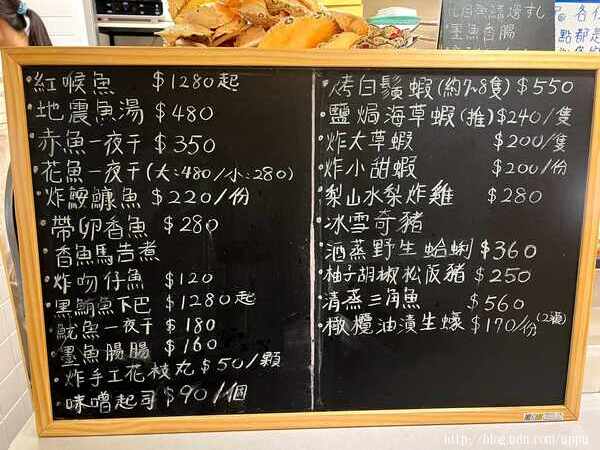 墨魚香腸
紅喉魚 $1280起
地震魚湯 $480
赤魚一夜干 $350
花魚一夜干(大:480/小:280)
炸鮟鱇魚 $220/份
帶卵香魚 $280
香魚馬告煮
炸吻仔魚 $120
黑鮪魚下巴 $1280起
魷魚一夜干 $180
墨魚腸腸 $160
炸手工花枝丸 $50/顆
味噌起司 $90/個
烤白鬚蝦(約7~8隻) $550
鹽焗海草蝦(推) $240/隻
炸大草蝦 $200/隻
炸小甜蝦 $200/份
梨山水梨炸雞 $280
冰雪奇豬
酒蒸野生蛤蜊 $360
柚子胡椒松阪豬 $250
清蒸三角魚 $560
橄欖油漬生蠔 $170/份(2顆)
http://blog.udn.com/uppu